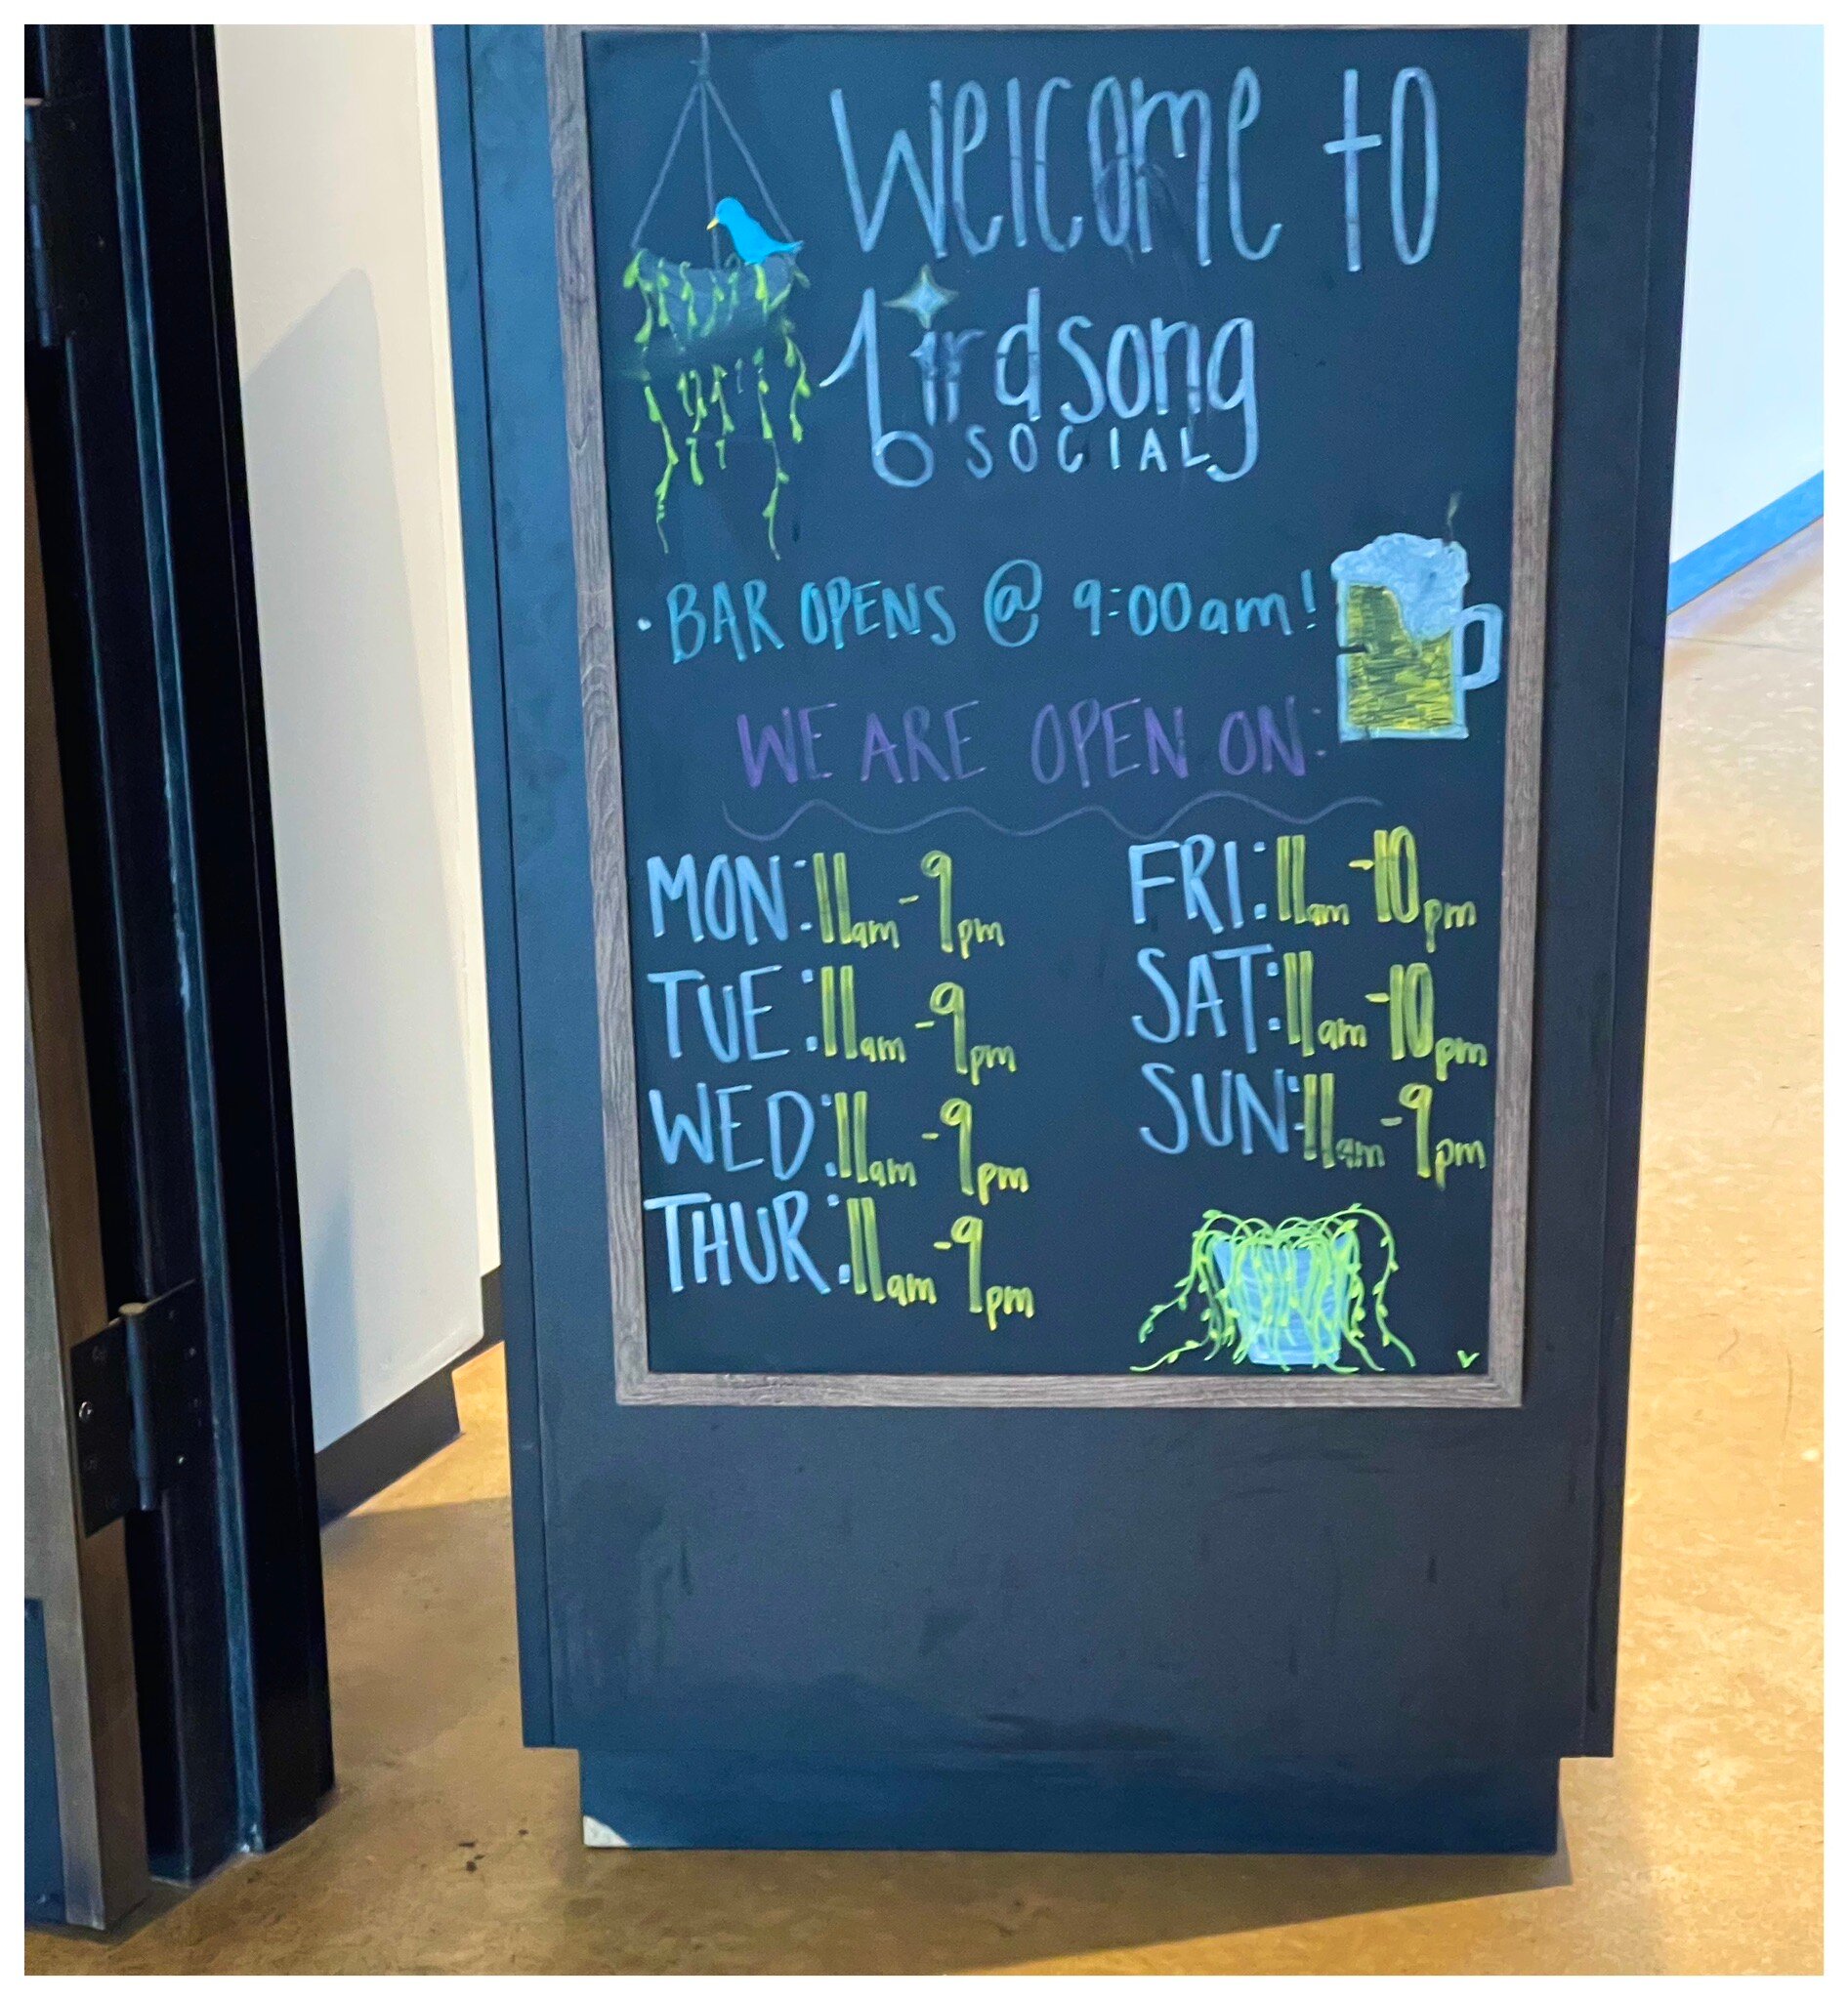 Welcome to
birdsong
SOCIAL
· BAR OPENS @ 9:00am!
WE ARE OPEN ON:
MON: 11am - 9pm
TUE: 11am - 9pm
WED: 11am - 9pm
THUR: 11am - 9pm
FRI: 11am - 10pm
SAT: 11am - 10pm
SUN: 11am - 9pm